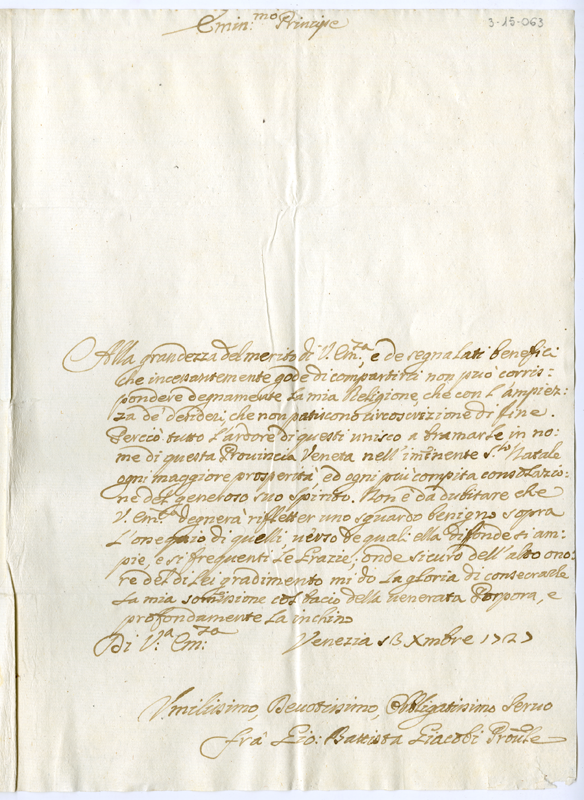 3-15-063
Emin.mo Principe
Alla grandezza del merito di V. Em.za, e de segnalati beneficj
che incessantemente gode di compartirci non può corris-
pondere degnamente la mia Religione, che con l'ampiez-
za de' desiderj, che non patiscono circoscrizione di fine.
Perciò tutto l'ardore di questi unisco a bramarle in no-
me di questa Provincia Veneta nell'imminente S.to Natale
ogni maggiore prosperità ed ogni più compita consolazio-
ne del generoso suo spirito. Non è da dubitare che
V. Em.za degnerà rifletter uno sguardo benigno sopra
l'ossequio di quelli verso de quali ella difonde sì am-
pie, e sì frequenti le Grazie, onde sicuro dell'alto ono-
re del di Lei gradimento mi do la gloria di consecrarle
la mia somissione col bacio della venerata Porpora, e
profondamente la inchino
Di V.a Em.za Venezia 13 Xmbre 1727
Vmilissimo, Devotissimo, Obbligatissimo Servo
frà Gio: Battista Giacobi Prõule